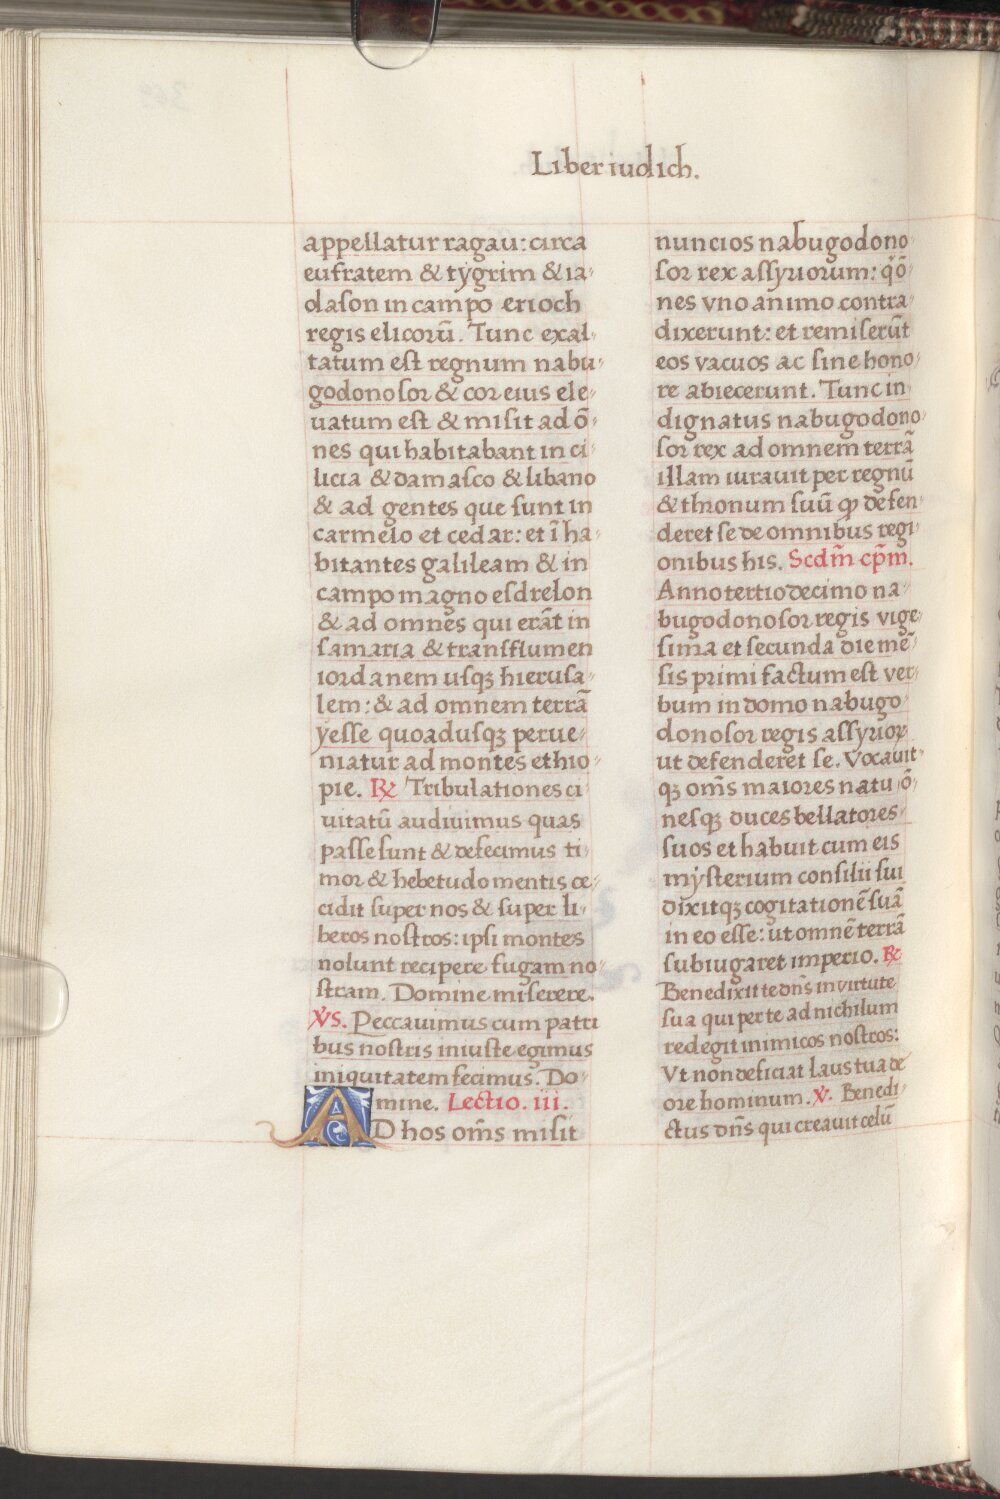 Liber iudich.
appellatur ragau: circa
eufratem & tygrim & ia-
dason in campo erioch
regis elicorū. Tunc exal-
tatum est regnum nabu-
godonosor & cor eius ele-
uatum est & misit ad ō-
nes qui habitabant in ci-
licia & damasco & libano
& ad gentes que sunt in
carmelo et cedar: et ī ha-
bitantes galileam & in
campo magno esdrelon
& ad omnes qui erāt in
samaria & transflumen
iordanem usqꝫ hierusa-
lem: & ad omnem terrā
yesse quoadusqꝫ perue-
niatur ad montes ethio-
pie. ℟ Tribulationes ci-
uitatū audiuimus quas
passe sunt & defecimus ti-
mor & hebetudo mentis ce-
cidit super nos & super li-
beros nostros: ipsi montes
nolunt recipere fugam no-
stram. Domine miserere.
℣S. Peccauimus cum patri
bus nostris iniuste egimus
iniquitatem fecimus. Do-
mine. Lectio. iii.
AD hos om̄s misit
nuncios nabugodono-
sor rex assyriorum: qͦō-
nes vno animo contra-
dixerunt: et remiserūt
eos vacuos ac sine hono-
re abiecerunt. Tunc in-
dignatus nabugodono-
sor rex ad omnem terrā
illam iurauit per regnū
& thronum suū ꝙ defen-
deret se de omnibus regi-
onibus his. Scdm̄ cp̄m.
Anno tertiodecimo na-
bugodonosor regis vige-
sima et secunda die mē-
sis primi factum est ver-
bum in domo nabugo-
donosor regis assyrioꝝ
ut defenderet se. Vocauit-
qꝫ om̄s maiores natu ō-
nesqꝫ duces bellatores
suos et habuit cum eis
mysterium consilii sui
dixitqꝫ cogitationē suā
in eo esse: ut omnē terrā
subiugaret imperio. ℟
Benedixit te dn̄s in virtute
sua qui per te ad nichilum
redegit inimicos nostros:
Vt non deficiat laus tua de
ore hominum. ℣. Benedi-
ctus dn̄s qui creauit celū